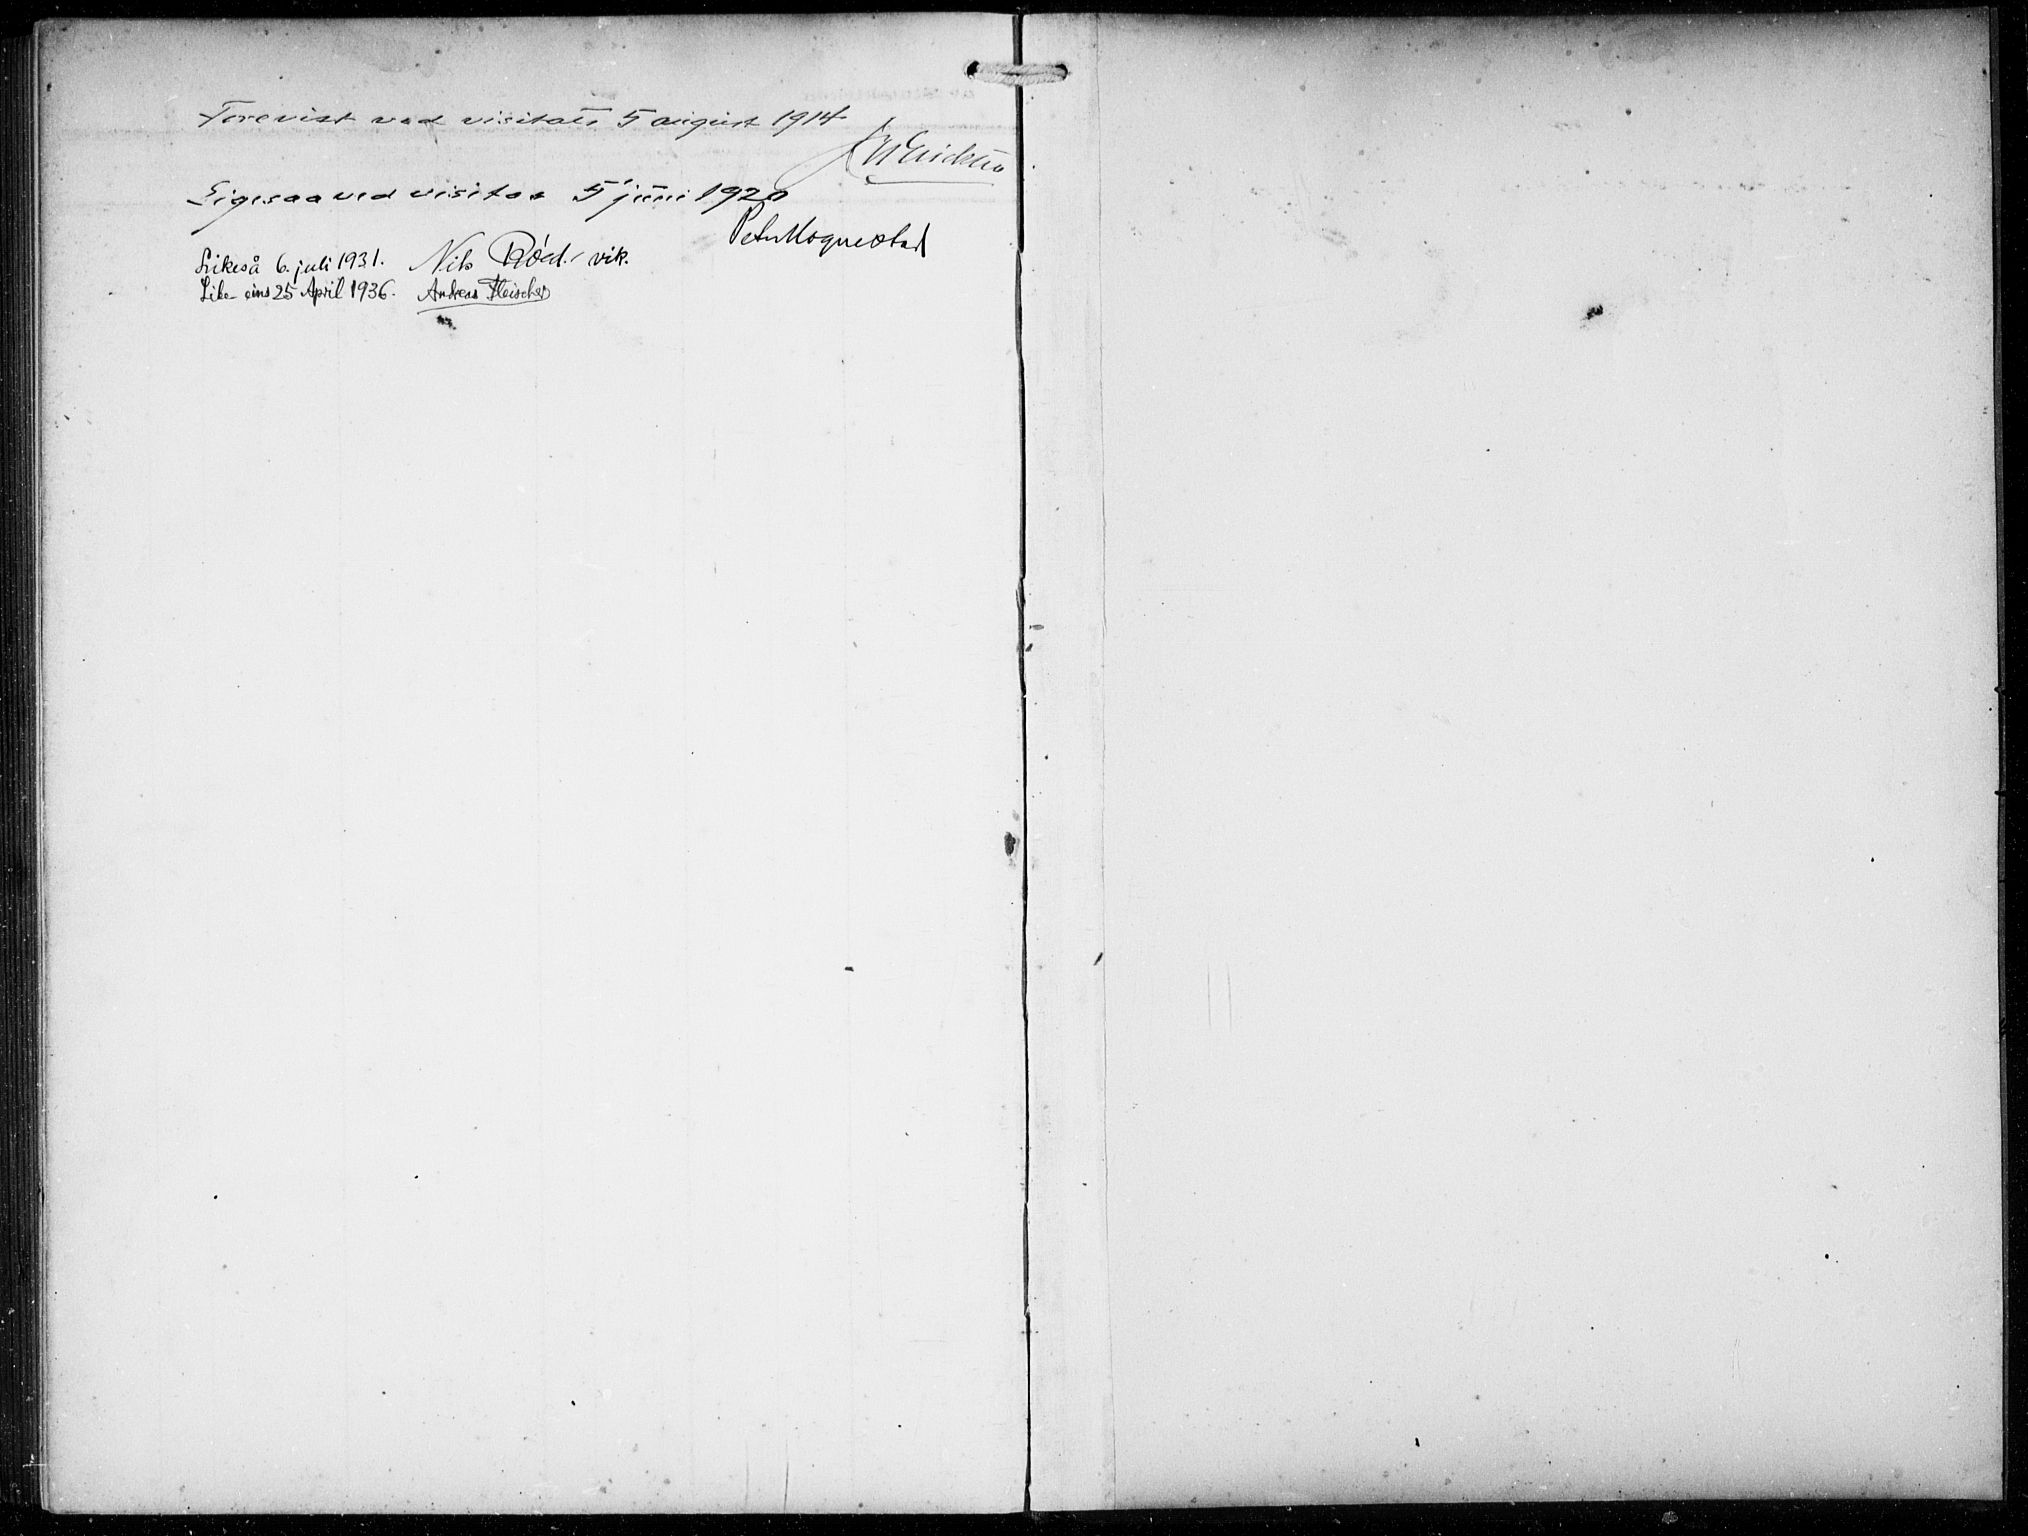 Forevist ved visitats 5 august 1914
Ligesaa ved visitas 5 juni 1920
Peter Hognestad
Likeså 6. juli 1931. Nils Röd. / vik.
Like eins 25 April 1936. Andreas Fleischer